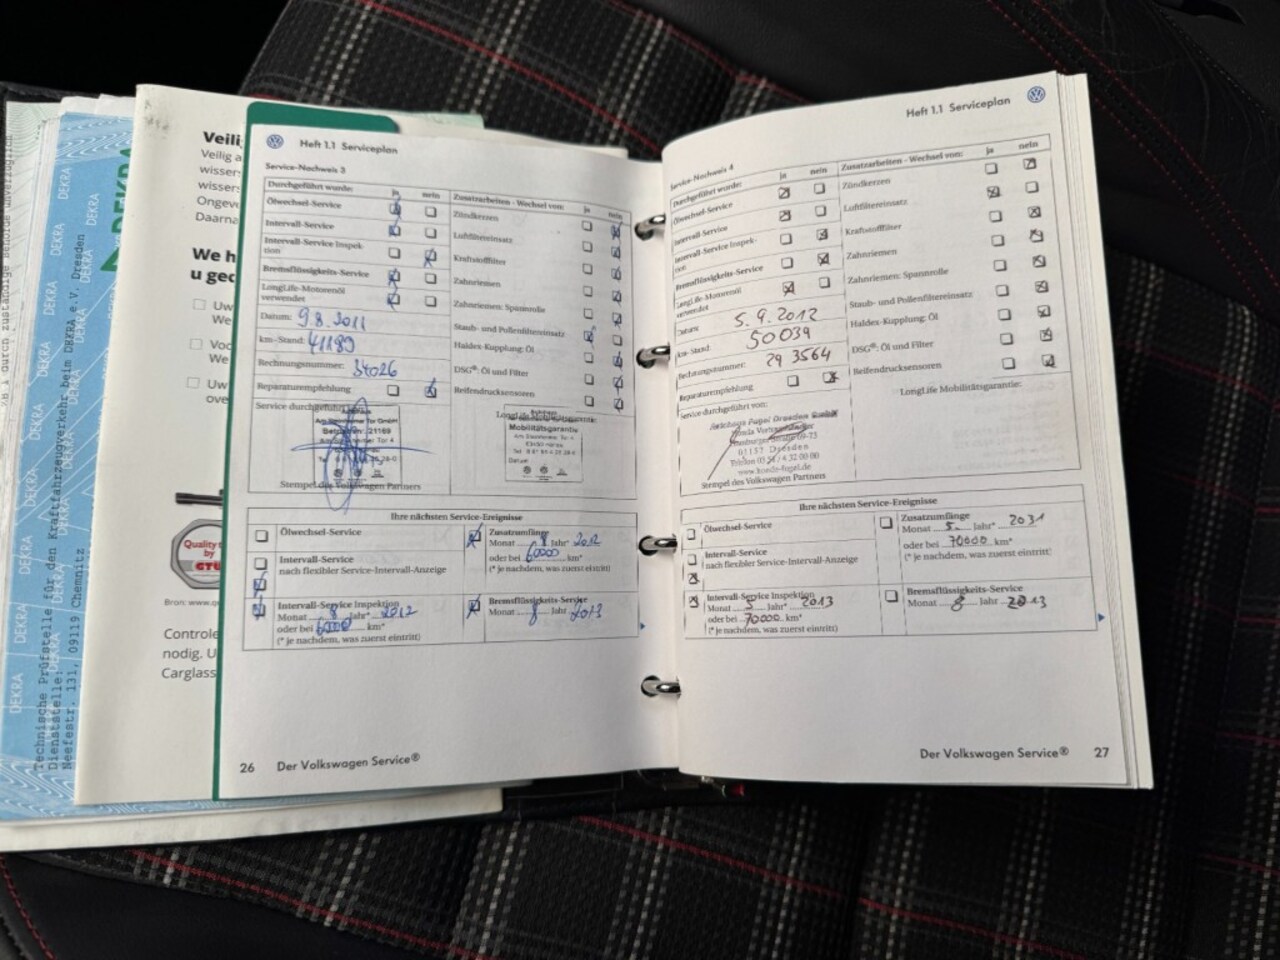 Technische Prüfstelle für den Kraftfahrzeugverkehr beim DEKRA e.V. Dresden
Dienststelle:
Neefestr. 131, 09119 Chemnitz
DEKRA
DEKRA
DEKRA
DEKRA
DEKRA
Veilig a
Ongev
Daarna
We h
u gec
Uw
We
Voo
We
Uw
ove
Quality
by
GTÜ
Controle
nodig. U
Carglass
Heft 1.1 Serviceplan
Service-Nachweis 3
Durchgeführt wurde: ja nein
Ölwechsel-Service
Intervall-Service
Intervall-Service Inspek-
tion
Bremsflüssigkeits-Service
LongLife-Motorenöl
verwendet
Datum: 9.8.2011
km-Stand: 41189
Rechnungsnummer: 34026
Reparaturempfehlung
Service durchgeführt
Stempel des Volkswagen Partners
Zusatzarbeiten - Wechsel von: ja nein
Zündkerzen
Luftfiltereinsatz
Kraftstofffilter
Zahnriemen
Zahnriemen: Spannrolle
Staub- und Pollenfiltereinsatz
Haldex-Kupplung: Öl
DSG®: Öl und Filter
Reifendrucksensoren
Mobilitätsgarantie
Datum:
Ihre nächsten Service-Ereignisse
Ölwechsel-Service
Intervall-Service
nach flexibler Service-Intervall-Anzeige
Intervall-Service Inspektion
Monat 8 Jahr* 2012
oder bei 60000 km*
(* je nachdem, was zuerst eintritt)
Zusatzumfänge
Monat 8 Jahr* 2012
oder bei 60000 km*
(* je nachdem, was zuerst eintritt)
Bremsflüssigkeits-Service
Monat 8 Jahr 2013
26 Der Volkswagen Service®
Heft 1.1 Serviceplan
Service-Nachweis 4
Durchgeführt wurde: ja nein
Ölwechsel-Service
Intervall-Service
Intervall-Service Inspek-
tion
Bremsflüssigkeits-Service
LongLife-Motorenöl
verwendet
Datum: 5.9.2012
km-Stand: 50039
Rechnungsnummer: 293564
Reparaturempfehlung
Service durchgeführt von:
01157 Dresden
Stempel des Volkswagen Partners
Zusatzarbeiten - Wechsel von: ja nein
Zündkerzen
Luftfiltereinsatz
Kraftstofffilter
Zahnriemen
Zahnriemen: Spannrolle
Staub- und Pollenfiltereinsatz
Haldex-Kupplung: Öl
DSG®: Öl und Filter
Reifendrucksensoren
LongLife Mobilitätsgarantie:
Ihre nächsten Service-Ereignisse
Ölwechsel-Service
Intervall-Service
nach flexibler Service-Intervall-Anzeige
Intervall-Service Inspektion
Monat 5 Jahr* 2013
oder bei 70000 km*
(* je nachdem, was zuerst eintritt)
Zusatzumfänge
Monat 5. Jahr* 2031
oder bei 70000 km*
(* je nachdem, was zuerst eintritt)
Bremsflüssigkeits-Service
Monat 8 Jahr 2013
Der Volkswagen Service® 27